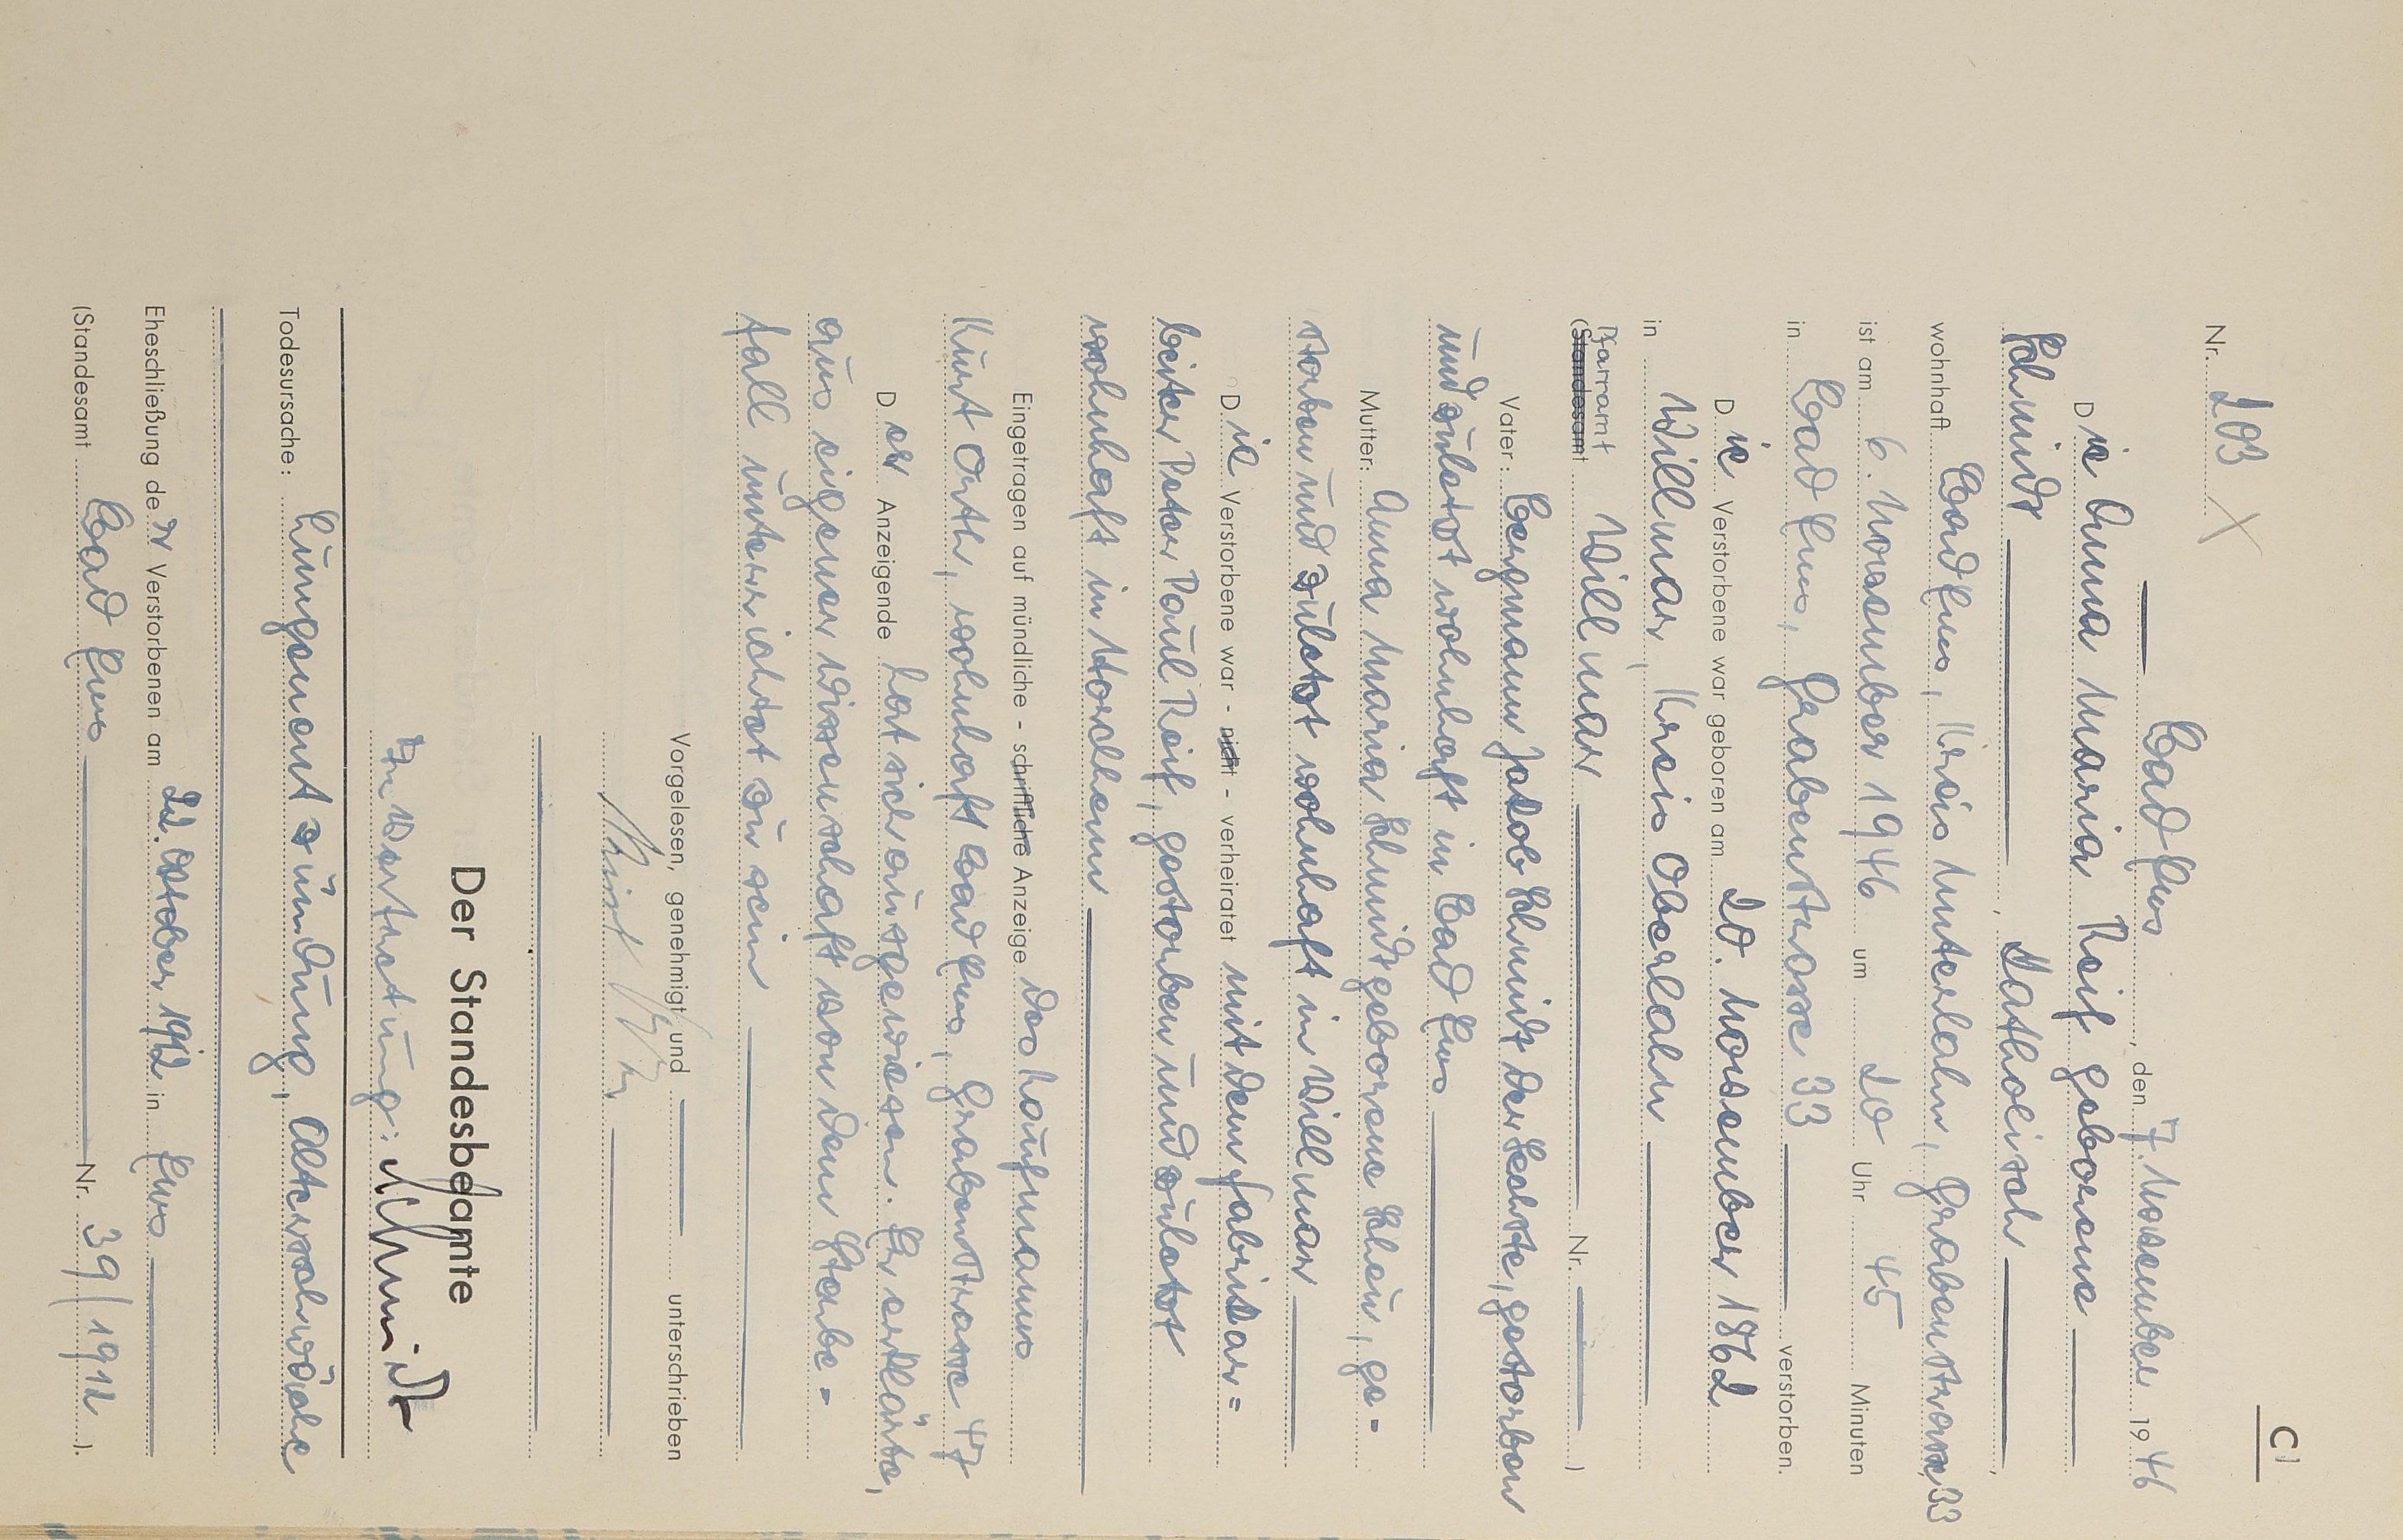 C1
Nr. 203
Bad Ems, den 7. November 1946
Die Anna Maria Reif geborene
Schmidt, katholisch,
wohnhaft Bad Ems, Kreis Unterlahn, Grabenstrasse 33
ist am 6. November 1946 um 20 Uhr 45 Minuten
in Bad Ems, Grabenstrasse 33 verstorben.
Die Verstorbene war geboren am 20. November 1862
in Villmar, Kreis Oberlahn
Pfarramt
(Standesamt Villmar Nr. )
Vater: Bergmann Jakob Schmidt der Sechste, gestorben
und zuletzt wohnhaft in Bad Ems
Mutter: Anna Maria Schmidt geborene Schein, ge=
storben und zuletzt wohnhaft in Villmar
Die Verstorbene war - nicht - verheiratet mit dem Fabrikar=
beiter Peter Paul Reif, gestorben und zuletzt
wohnhaft in Horchheim
Eingetragen auf mündliche - schriftliche Anzeige des Kaufmanns
Kurt Orth, wohnhaft Bad Ems, Grabenstrasse 47
Der Anzeigende hat sich ausgewiesen. Er erklärte,
aus eigener Wissenschaft von dem Sterbe=
fall unterrichtet zu sein
Vorgelesen, genehmigt und unterschrieben
Kurt Orth
Der Standesbeamte
In Vertretung: Schmidt
Todesursache: Lungenentzündung, Altersschwäche
Eheschließung der Verstorbenen am 22. Oktober 1912 in Ems
(Standesamt Bad Ems Nr. 39/1912).